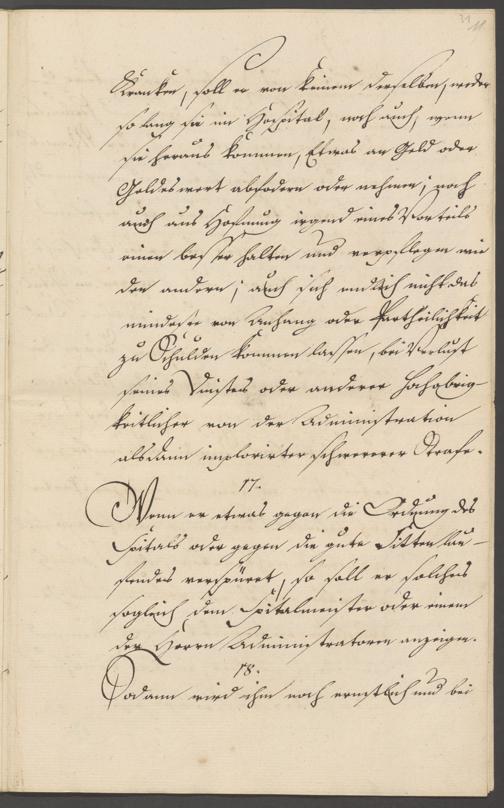 11
Kranken, soll er von keinem derselben, weder
so lang sie im Hospital, noch auch, wenn
sie heraus kommen, Etwas an Geld oder
Geldeswert abfodern oder nehmen; noch
auch aus Hofnung irgend eines Vorteils
einen besser halten und verpflegen wie
den andern; auch sich endlich nicht das
mindeste von Anhang oder Partheilichkeit
zu Schulden kommen lassen, bei Verlust
seines Dinstes oder anderer hochobrig-
keitlicher von der Administration
alsdann implorirter schwererer Strafe.
17.
Wenn er etwas gegen die Ordnung des
Spitals oder gegen die gute Sitten lau-
fendes verspüret, so soll er solches
sogleich dem Spitalmeister oder einem
der Herrn Administratoren anzeigen.
18.
Sodann wird ihm noch ernstlich und bei